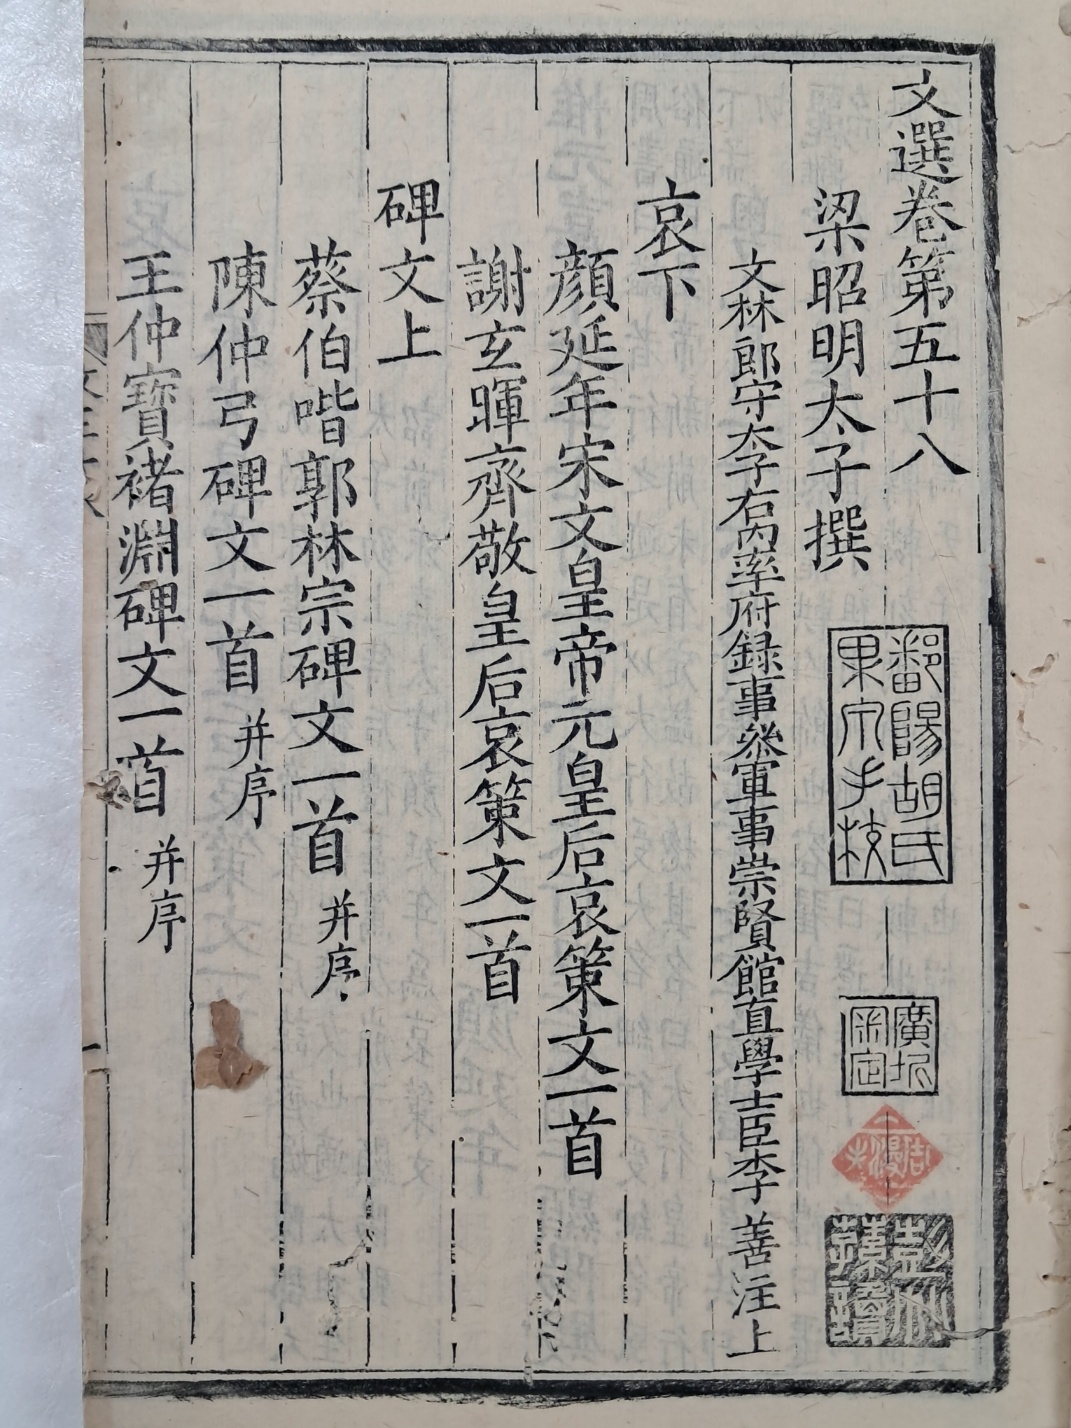 文選卷第五十八
梁昭明太子撰
文林郎守太子右內率府録事參軍事崇賢館直學士臣李善注上
哀下
顔延年宋文皇帝元皇后哀策文一首
謝玄暉齊敬皇后哀策文一首
碑文上
蔡伯喈郭林宗碑文一首并序
陳仲弓碑文一首并序
王仲寶褚淵碑文一首并序
鄱陽胡氏
果泉手校